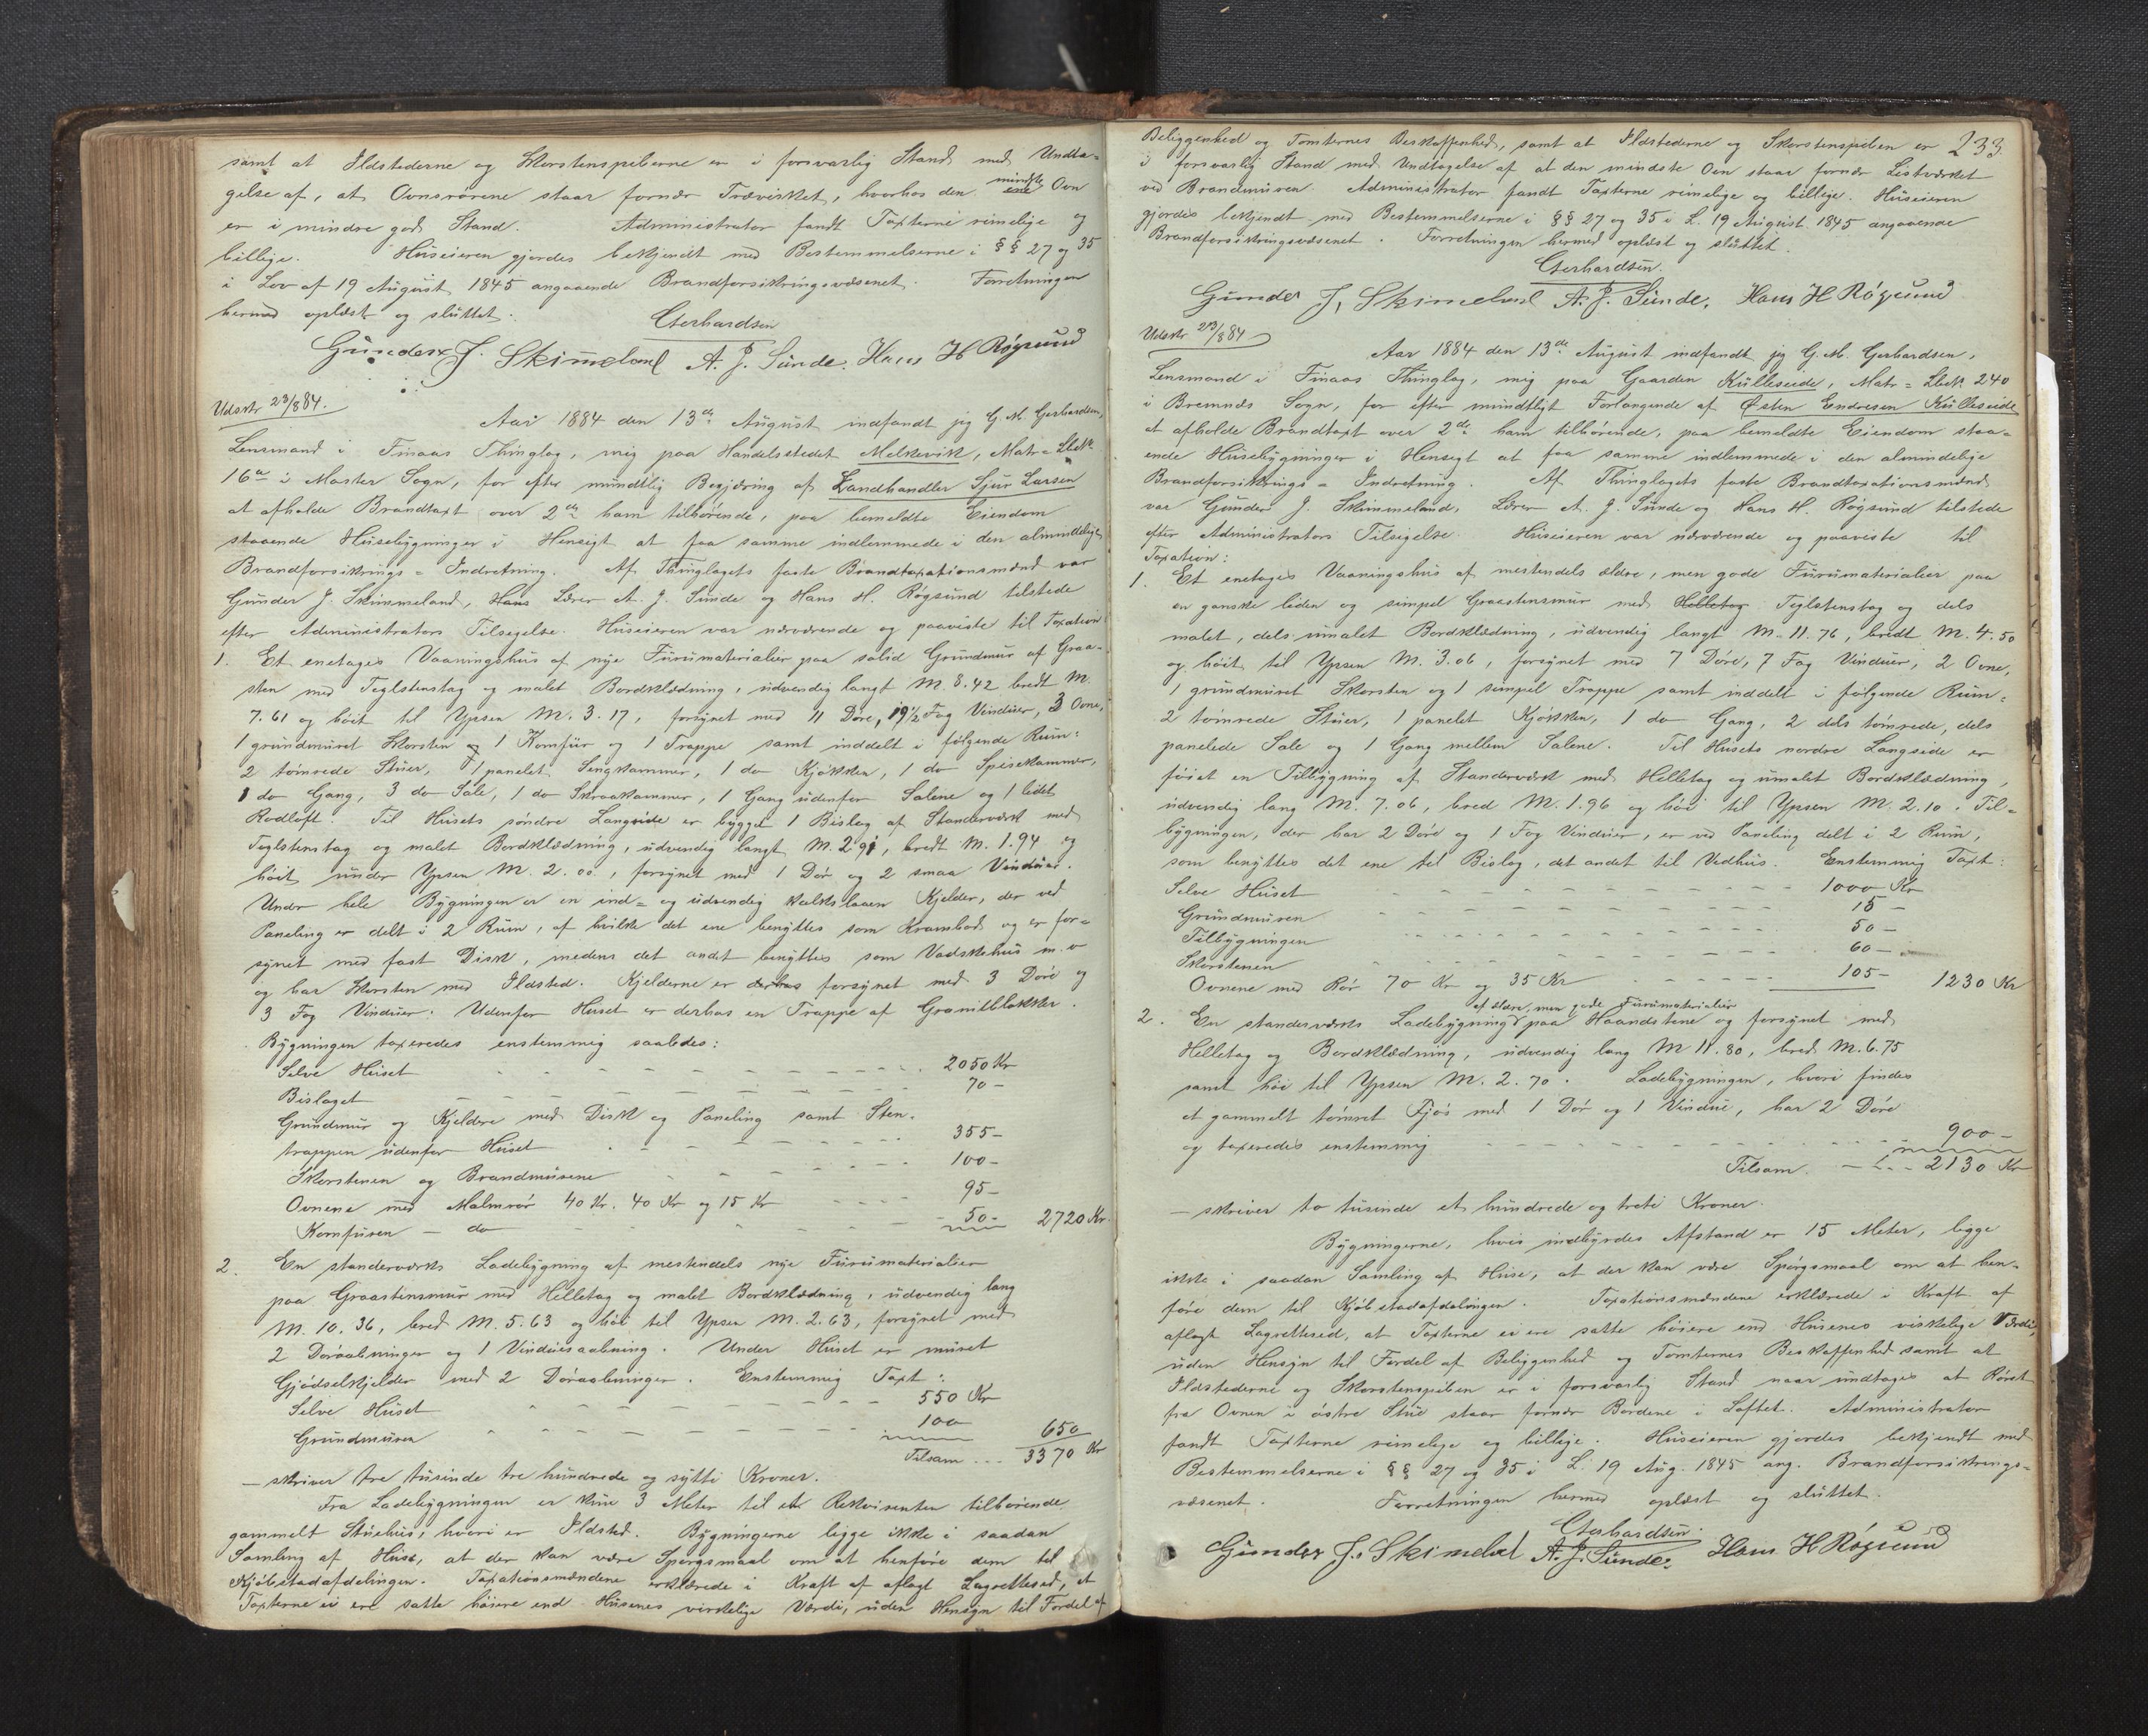 samt at Ildstederne og Skorstenspiberne er i forsvarlig Stand med Undta-
gelse af, at Ovnsrörene staar fornær Trævirket, hvorhos den mindste Ovn
er i mindre god Stand. Administrator fandt Taxterne rimelige og
billige. Huseieren gjordes bekjendt med Bestemmelserne i §§ 27 og 35
i Lov af 19 August 1845 angaaende Brandforsikringsvæsenet. Forretningen
hermed oplæst og sluttet.
Gerhardsen
Gunder J. Skimeland A. J. Sunde. Hans H Røgsund
Udskr 23/8 84.
Aar 1884 den 13de August indfandt jeg G. M. Gerhardsen,
Lensmand i Finaas Thinglag, mig paa Handelsstedet Melkevik, Matr = Lbek
16a i Moster Sogn, for efter mundtlig Begjæring af Landhandler Sjur Larsen
at afholde Brandtaxt over 2de ham tilhörende, paa bemeldte Eiendom
staaende Husebygninger i Hensigt at faa samme indlemmede i den almindelige
Brandforsikrings = Indretning. Af Thinglagets faste Brandtaxationsmænd var
Gunder J. Skimmeland, Hans Lærer A. J. Sunde og Hans H. Røgsund tilstede
efter Administrators Tilsigelse. Huseieren var nærværende og paaviste til Taxation
1. Et enetages Vaaningshus af nye Furumaterialier paa solid Grundmur af Graa-
sten med Teglstenstag og malet Bordklædning, udvendig langt M. 8.42 bredt M.
7.61 og höit til Ypsen M. 3.17, forsynet med 11 Döre, 19½ Fag Vinduer, 3 Ovne,
1 grundmuret Skorsten og 1 Komfur og 1 Trappe samt inddelt i fölgende Rum:
2 tömrede Stuer, 1 panelet Sengkammer, 1 do Kjökken, 1 do Spisekammer,
1 do Gang, 3 do Sale, 1 do Skraakammer, 1 Gang udenfor Salene og 1 lidet
Rodloft. Til Husets söndre Langside er bygget 1 Bislag af Standerværk med
Teglstenstag og malet Bordklædning, udvendig langt M. 2.91, bredt M. 1.94 og
höit under Ypsen M. 2.00, forsynet med 1 Dör og 2 smaa Vinduer.
Under hele Bygningen er en ind= og udvendig kalkslaaen Kjelder, der ved
Paneling er delt i 2 Rum, af hvilke det ene benyttes som Krambod og er for=
synet med fast Disk, medens det andet benyttes som Vadskehus m. v
og har Skorsten med Ildsted. Kjelderne er derhos forsynet med 3 Döre og
3 Fag Vinduer. Udenfor Huset er derhos en Trappe af Granitblokker.
Bygningen taxeredes enstemmig saaledes:
Selve Huset 2050 Kr
Bislaget 70 -
Grundmur og Kjeldere med Disk og Paneling samt Sten-
trappen udenfor Huset 355 -
Skorstenen og Brandmurene 100 -
Ovnene med Malmrör 40 Kr. 40 Kr og 15 Kr 95 -
Komfuren - do 50 - 2720 Kr.
2. En standerværks Ladebygning af mestendels nye Furumaterialier
paa Graastensmur med Helletag og malet Bordklædning, udvendig lang
M. 10.36, bred M. 5.63 og höi til Ypsen M. 2.63, forsynet med
2 Döraabninger og 1 Vinduesaabning. Under Huset er muret
Gjödselkjelder med 2 Döraabninger. Enstemmig Taxt:
Selve Huset 550 Kr
Grundmuren 100 650
Tilsam ... 3370 Kr
- skriver tre tusinde tre hundrede og sytti Kroner.
Fra Ladebygningen er kun 3 Meter til et Rekvirenten tilhörende
gammelt Stuehus, hvori er Ildsted. Bygningerne ligge ikke i saadan
Samling af Huse, at der kan være Spörgsmaal om at henföre dem til
Kjöbstadafdelingen. Taxationsmændene erklærede i Kraft af aflagt Lagrettesed, at
Taxterne ei ere satte höiere end Husenes virkelige Værdi, uden Hensyn til Fordel af
233
Beliggenhed og Tomternes Beskaffenhed, samt at Ildstederne og Skorstenspiben er
i forsvarlig Stand med Undtagelse af at den mindste Ovn staar fornær Listværket
ved Brandmuren. Administrator fandt Taxterne rimelige og billige. Huseieren
gjordes bekjendt med Bestemmelserne i §§ 27 og 35 i L. 19 August 1845 angaaende
Brandforsikringsvæsenet. Forretningen hermed oplæst og sluttet.
Gerhardsen.
Gunder J. Skimeland A. J. Sunde. Hans H Røgsund
Udskr 23/8 84
Aar 1884 den 13de August indfandt jeg G. M. Gerhardsen,
Lensmand i Finaas Thinglag, mig paa Gaarden Kulleseide, Matr = Lbek 240
i Bremnæs Sogn, for efter mundtligt Forlangende af Østen Endresen Kulleseide
at afholde Brandtaxt over 2de ham tilhörende, paa bemeldte Eiendom staa=
ende Husebygninger i Hensigt at faa samme indlemmede i den almindelige
Brandforsikrings = Indretning. Af Thinglagets faste Brandtaxationsmænd
var Gunder J. Skimmeland, Lærer A. J. Sunde og Hans H. Røgsund tilstede
efter Administrators Tilsigelse. Huseieren var nærværende og paaviste til
Taxation:
1. Et enetages Vaaningshus af mestendels ældre, men gode Furumaterialier paa
en ganske liden og simpel Graastensmur med Helletag Teglstenstag og dels
malet, dels umalet Bordklædning, udvendig langt M. 11.76, bredt M. 4.50
og höit til Ypsen M. 3.06, forsynet med 7 Döre, 7 Fag Vinduer, 2 Ovne,
1 grundmuret Skorsten og 1 simpel Trappe samt inddelt i fölgende Rum:
2 tömrede Stuer, 1 panelet Kjökken, 1 do Gang, 2 dels tömrede, dels
panelede Sale og 1 Gang mellem Salene. Til Husets nordre Langside er
föiet en Tilbygning af Standerværk med Helletag og umalet Bordklædning,
udvendig lang M. 7.06, bred M. 1.96 og höi til Ypsen M. 2.10. Til=
bygningen, der har 2 Döre og 1 Fag Vinduer, er ved Paneling delt i 2 Rum,
som benyttes det ene til Bislag, det andet til Vedhus. Enstemmig Taxt:
Selve Huset 1000 Kr
Grundmuren 15 -
Tilbygningen 50 -
Skorstenen 60 -
Ovnene med Rör 70 Kr og 35 Kr 105 - 1230 Kr
2. En standerværks Ladebygning af ældre, men gode Furumaterialier paa Haandstene og forsynet med
Helletag og Bordklædning, udvendig lang M 11.80, bred M. 6.75
samt höi til Ypsen M. 2.70. Ladebygningen, hvori findes
et gammelt tömret Fjös med 1 Dör og 1 Vindue, har 2 Döre
og taxeredes enstemmig 900 -
Tilsam. 2130 Kr
- skriver to tusinde et hundrede og treti Kroner.
Bygningerne, hvis indbyrdes Afstand er 15 Meter, ligge
ikke i saadan Samling af Huse, at der kan være Spörgsmaal om at hen-
före dem til Kjöbstadafdelingen. Taxationsmændene erklærede i Kraft af
aflagt Lagrettesed, at Taxterne ei ere satte höiere end Husenes virkelige Værdi,
uden Hensyn til Fordel af Beliggenhed og Tomternes Beskaffenhed samt at
Ildstederne og Skorstenspiben er i forsvarlig Stand naar undtages at Röret
fra Ovnen i östre Stue staar fornær Bordene i Loftet. Administrator
fandt Taxterne rimelige og billige. Huseieren gjordes bekjendt med
Bestemmelserne i §§ 27 og 35 i L. 19 Aug. 1845 ang. Brandforsikrings-
væsenet. Forretningen hermed oplæst og sluttet.
Gerhardsen.
Gunder J. Skimeland A. J. Sunde. Hans H Røgsund